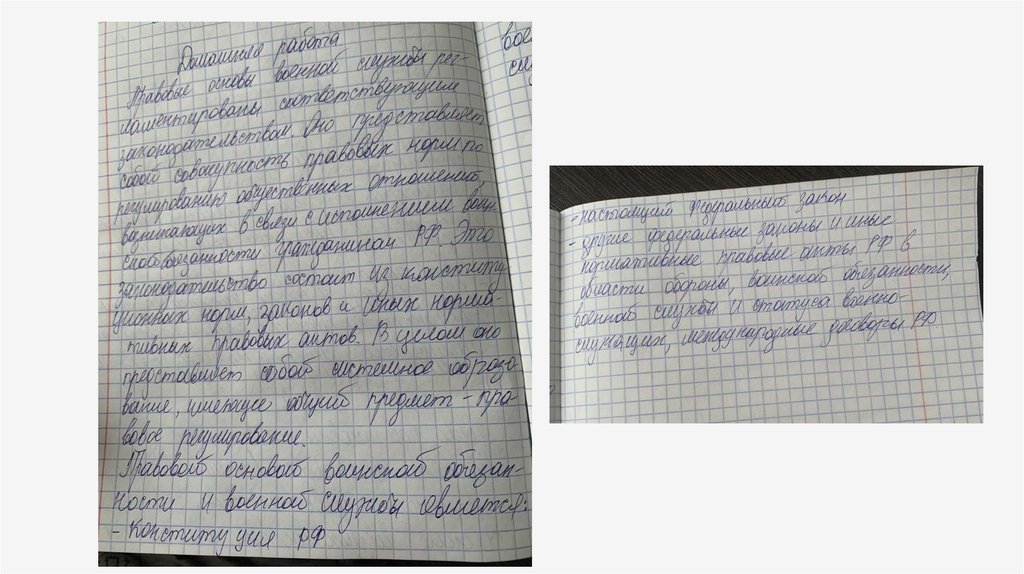 Домашняя работа.
Правовые основы военной службы рег-
ламентированы соответствующим
законодательством. Оно представляет
собой совокупность правовых норм по
регулированию общественных отношений,
возникающих в связи с исполнением воин
ской обязанности гражданином РФ. Это
законодательство состоит из конститу-
ционных норм, законов и иных норма-
тивных правовых актов. В целом оно
представляет собой системное образо
вание, имеющее общий предмет - пра-
вовое регулирование.
Правовой основой воинской обязан-
ности и военной службы является:
- Конституция РФ
вое
- настоящий Федеральный закон
- другие федеральные законы и иные
нормативные правовые акты РФ в
области обороны, воинской обязанности,
военной службы и статуса военно-
служащих, международные договоры РФ